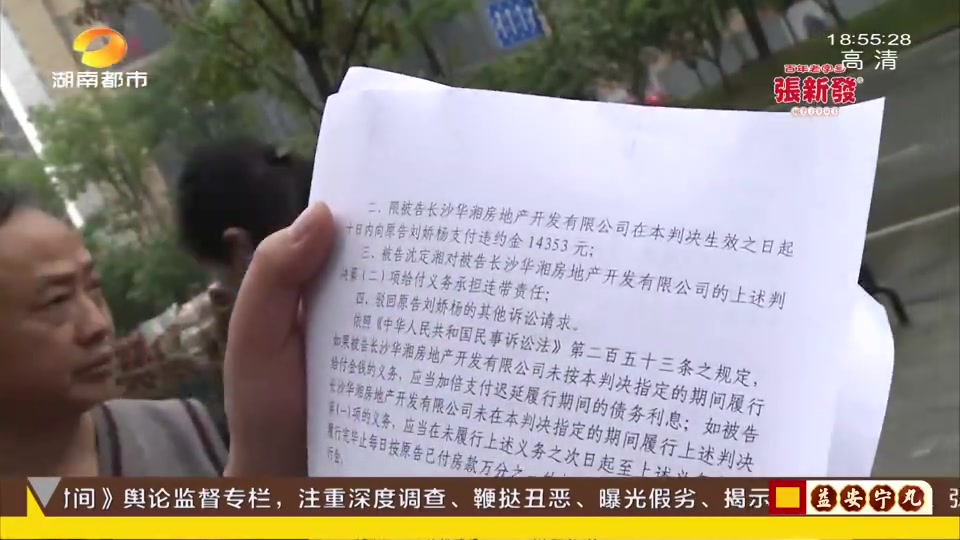 湖南都市
18:55:28
高清
百年老字号
張新發
二、限被告长沙华湘房地产开发有限公司在本判决生效之日起
十日内向原告刘娇杨支付违约金14353元；
三、被告沈定湘对被告长沙华湘房地产开发有限公司的上述判
决第（二）项给付义务承担连带责任；
四、驳回原告刘娇杨的其他诉讼请求。
依照《中华人民共和国民事诉讼法》第二百五十三条之规定，
如果被告长沙华湘房地产开发有限公司未按本判决指定的期间履行
给付金钱的义务，应当加倍支付迟延履行期间的债务利息；如被告
长沙华湘房地产开发有限公司未在本判决指定的期间履行上述判决
第(一)项的义务，应当在未履行上述义务之次日起至上述义
履行完毕止每日按原告已付房款万分之
行金。
时间》舆论监督专栏，注重深度调查、鞭挞丑恶、曝光假劣、揭示
益安宁丸